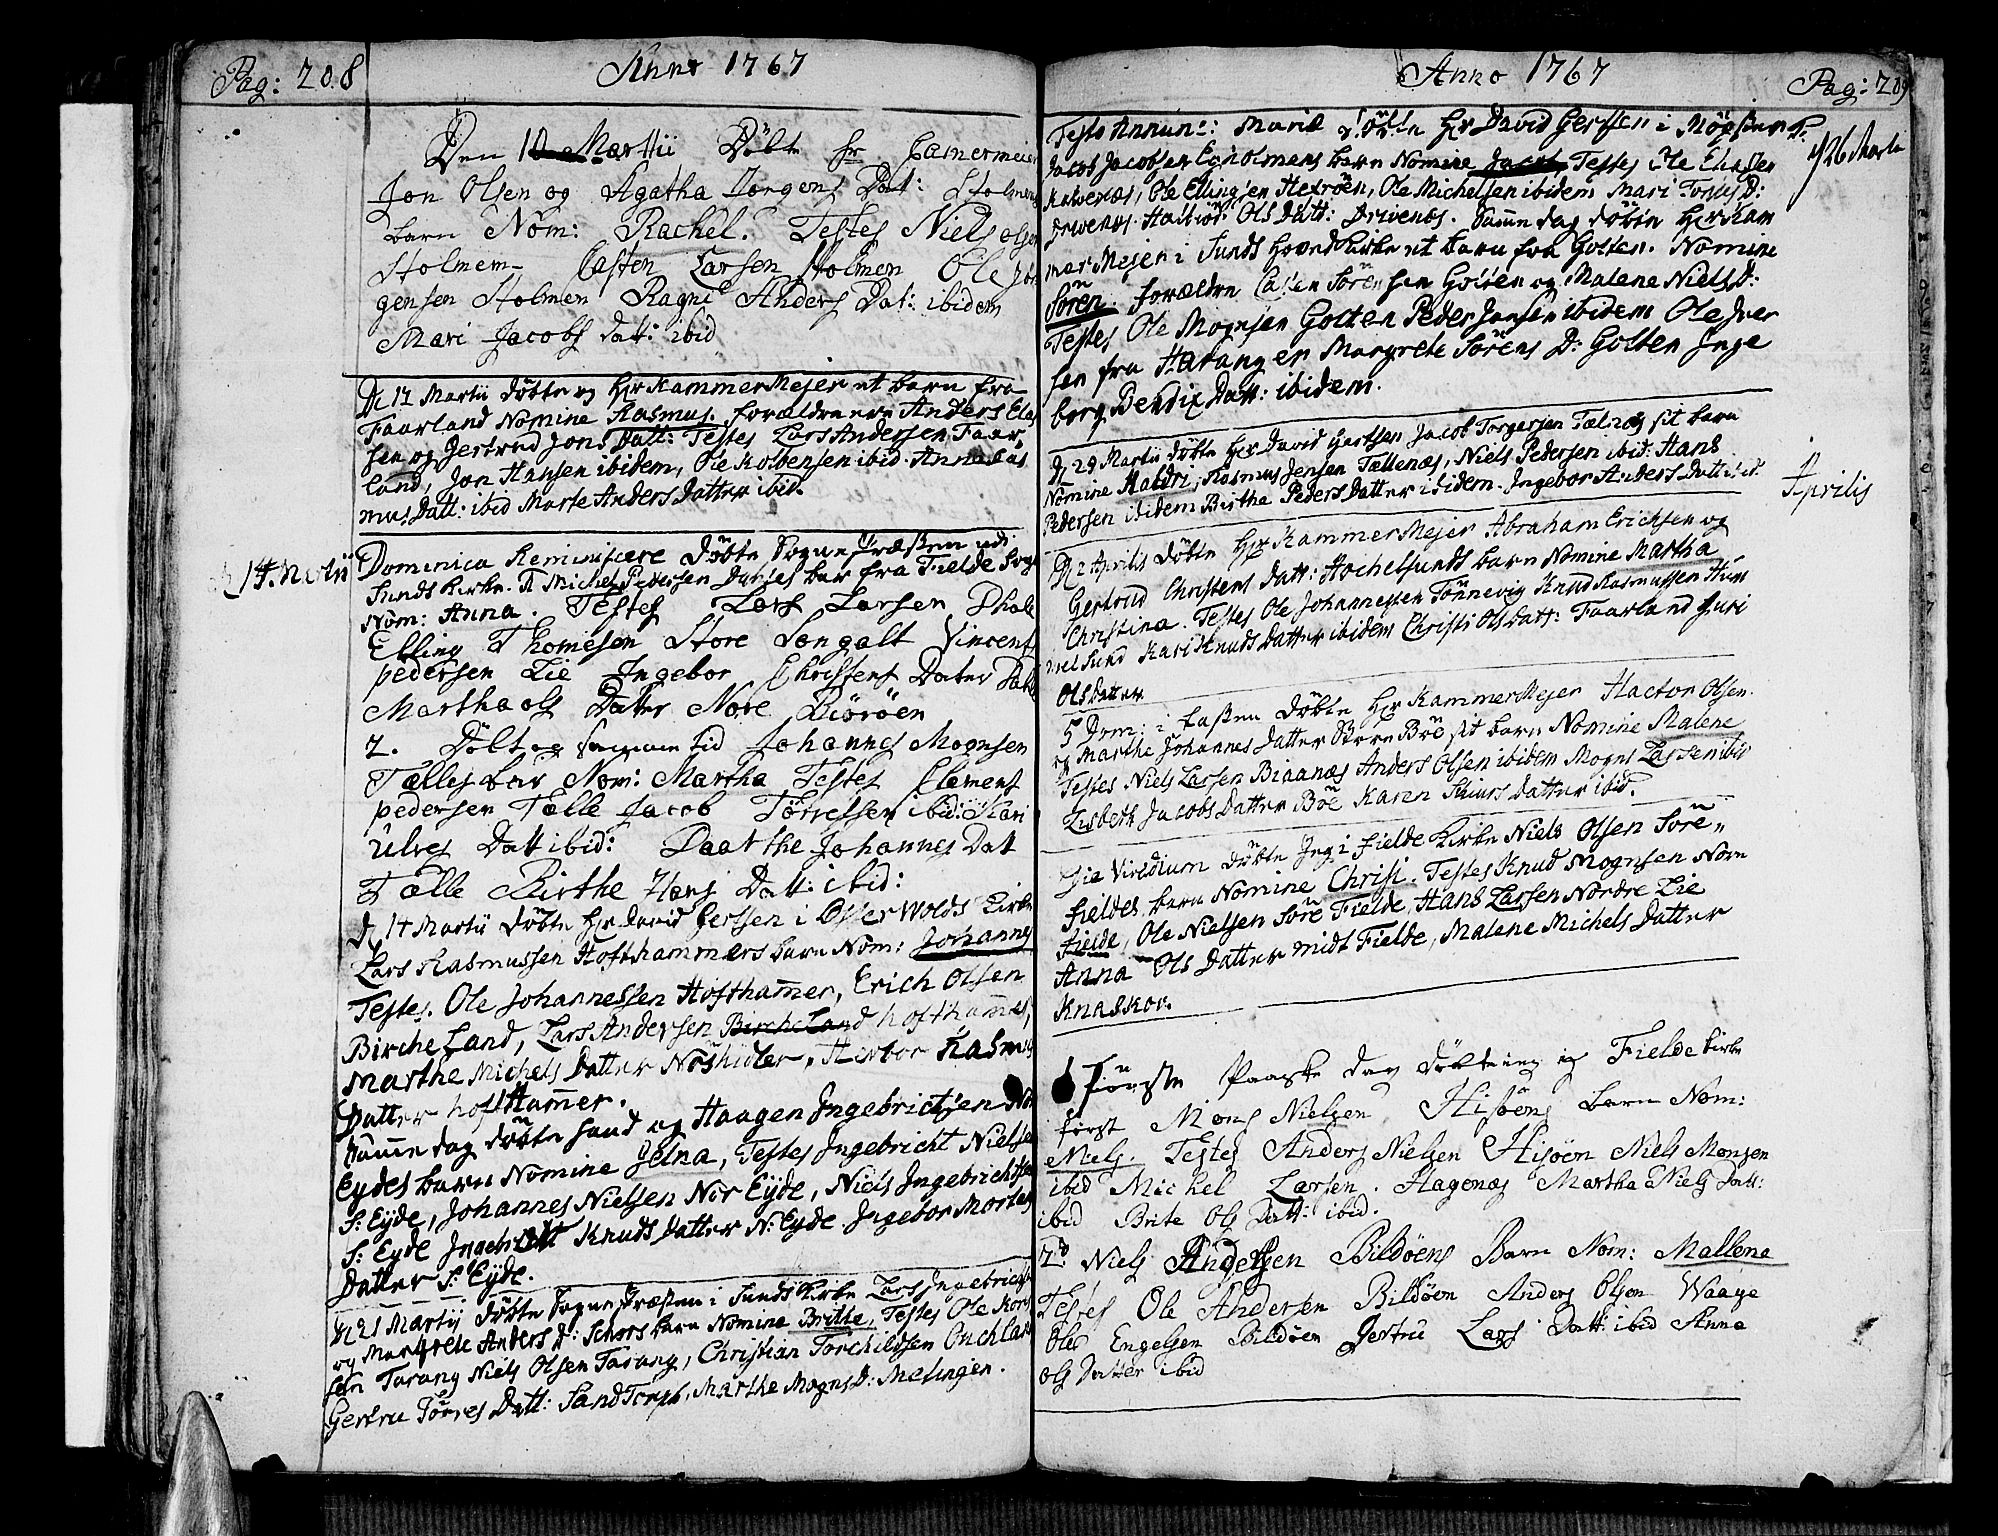 Pag: 208
Anno 1767
Den 10 Martii Döbte hr Camermeier
Jon Olsen og Agatha Jørgens Dat: Stolmens
barn Nom: Rachel. Testes Niels olsen
Stolmen Casten Larsen Stolmen Ole Jör
gensen Stolmen Ragni Anders Dat: ibidem
Mari Jacobs Dat: ibid
D 12 Martii döbte og Hr KammerMejer et barn fra
Faarland Nomine Rasmus. forældrene Anders Ela
sen og Gertrud Jons Datt: Testes Lars Andersen Faar
land, Jon Hansen ibidem, Ole Kolbensen ibid. Anna Ras
mus Datt: ibid Marte Anders Datter ibid.
14. Martii
Dominica Reminiscere Döbte Sogne Præsten udi
Sunds kirke. Michel Pedersen bar fra Fielde
Nom: Anna. Testes Lars Larsen Dhale
Elling Thomesen Store Songalt Vincent
pedersen Lie Ingebor Christens Dater
Martha ols Dater Nore Biöröen
2. Döbt og samme tid Johannes Mognsen
Tælles bar Nom: Martha Testes Clement
pedersen Tælle Jacob Törressen ibid: Kari
Ulves Datt ibid: Daarthe Johannes Dat
Tælle Birthe Hans Datt: ibid:
D 14 Martii döbte Hr David Gerssen i Österwolds Kirke
Lars Rasmussen Hofthammers barn Nom: Johannes
Testes. Ole Johannessen Hofthamer, Erich Olsen
Bircheland, Lars Andersen Bircheland hofthammer,
Marthe Michels Datter Nöshidler, Herbor Rasmus
Datter hofthammer.
Samme dag döbte hand og Haagen Ingebrictsen Nor
Eydes barn Nomine Gelna, Testes Ingebricht Nielsen
S: Eyde, Johannes Nielsen Nor Eyde, Niels Ingebrichtsen
S: Eyde Ingebricht Knuds Datter N: Eyde Ingebor Mortens
Datter S: Eyde.
D 21 Martij döbte Sogne Præsten i Sunds Kirke Lars Ingebrictsen
og Margrete Anders D: Schors barn Nomine Britte, Testes Ole Kors
sen Tarang Niels Olsen Tarang, Christian Torchildsen Onchland
Gertru Törres Datt: Sandtorph, Marthe Mogns D: Melingen.
Anno 1767
Pag: 209
26 Marti
Festo Annun: Mariæ döbte Hr David Gerssen i Möcster
Jacob Jacobsen Egholmens barn Nomine Jacob, Testes Ole Eliasen
Kalvenæs, Ole Ellingsen Hexröen, Ole Michelsen ibidem Mari D:
Drivenæs Ols Datt: Drivenæs. Samme dag döbte Hr Kam
mer Mejer i Sunds Hoved Kirke et barn fra Golten. Nomine
Sören. forældre Casten Sörensen Golten og Malene Niels D:
Testes Ole Mognsen Golten Peder Jansen ibidem Ole Iver
sen fra Haranger Margrete Sörens D: Golten Inge
borg Bendix Datt: ibidem.
D 29 Martii döbte Hr David Gertsen Jacob Torgersen Tælnæs sit barn
Nomine Haldri, Rasmus Jensen Tællenæs, Niels Pedersen ibid: Hans
Pedersen ibidem Birthe Peders Datter ibidem. Ingebor Anders Datt: ibid.
Aprilis
D 2 Aprilis Döbte Hr Kammer Mejer Abraham Erichsen og
Gertrud Christens Datt: Hochelsunds barn Nomine Martha
Christina. Testes Ole Johannesen Tönnevig Knud Rasmussen Hum
mel Sund Kari Knuds Datter ibidem Christi Ols Datt: Faarland Guri
Ols datter
5 Dom: i Fasten Döbte Hr Kammer Mejer Hactor Olsen
og Marthe Johannes Datter Store Böe sit barn Nomine Malene
Testes Niels Larsen Biaanæs Anders Olsen ibidem Mogns Larsen ibid
Lisbeth Jacobs Datter Böe Karen Siurs Datter ibid.
Die Viridium Döbte Jeg i Fielde kirke Niels Olsen Söre
Fieldes barn Nomine Christi. Testes Knud Mognsen Nore
Fielde, Ole Nielsen Söre Fielde, Hans Larsen Nordre Lie
Anna Ols Datter midt Fielde, Malene Michels Datter
Knaskov.
Förste Paaske dag Döbte ieg i Fielde kirke
først Mons Nielsen Hisöens barn Nom:
Niels. Testes Anders Nielsen Hisöen Niels Monsen
ibid Michel Larsen Hagenæs Martha Niels Datt:
ibid Brite Ols Datt: ibid.
2. Niels Andersen Bildöens Barn Nom: Mallena
Testes Ole Andersen Bildöen Anders Olsen Waage
Ole Engelsen Bildöen Jertru Lars Datt: ibid Anna
ols Datter ibid